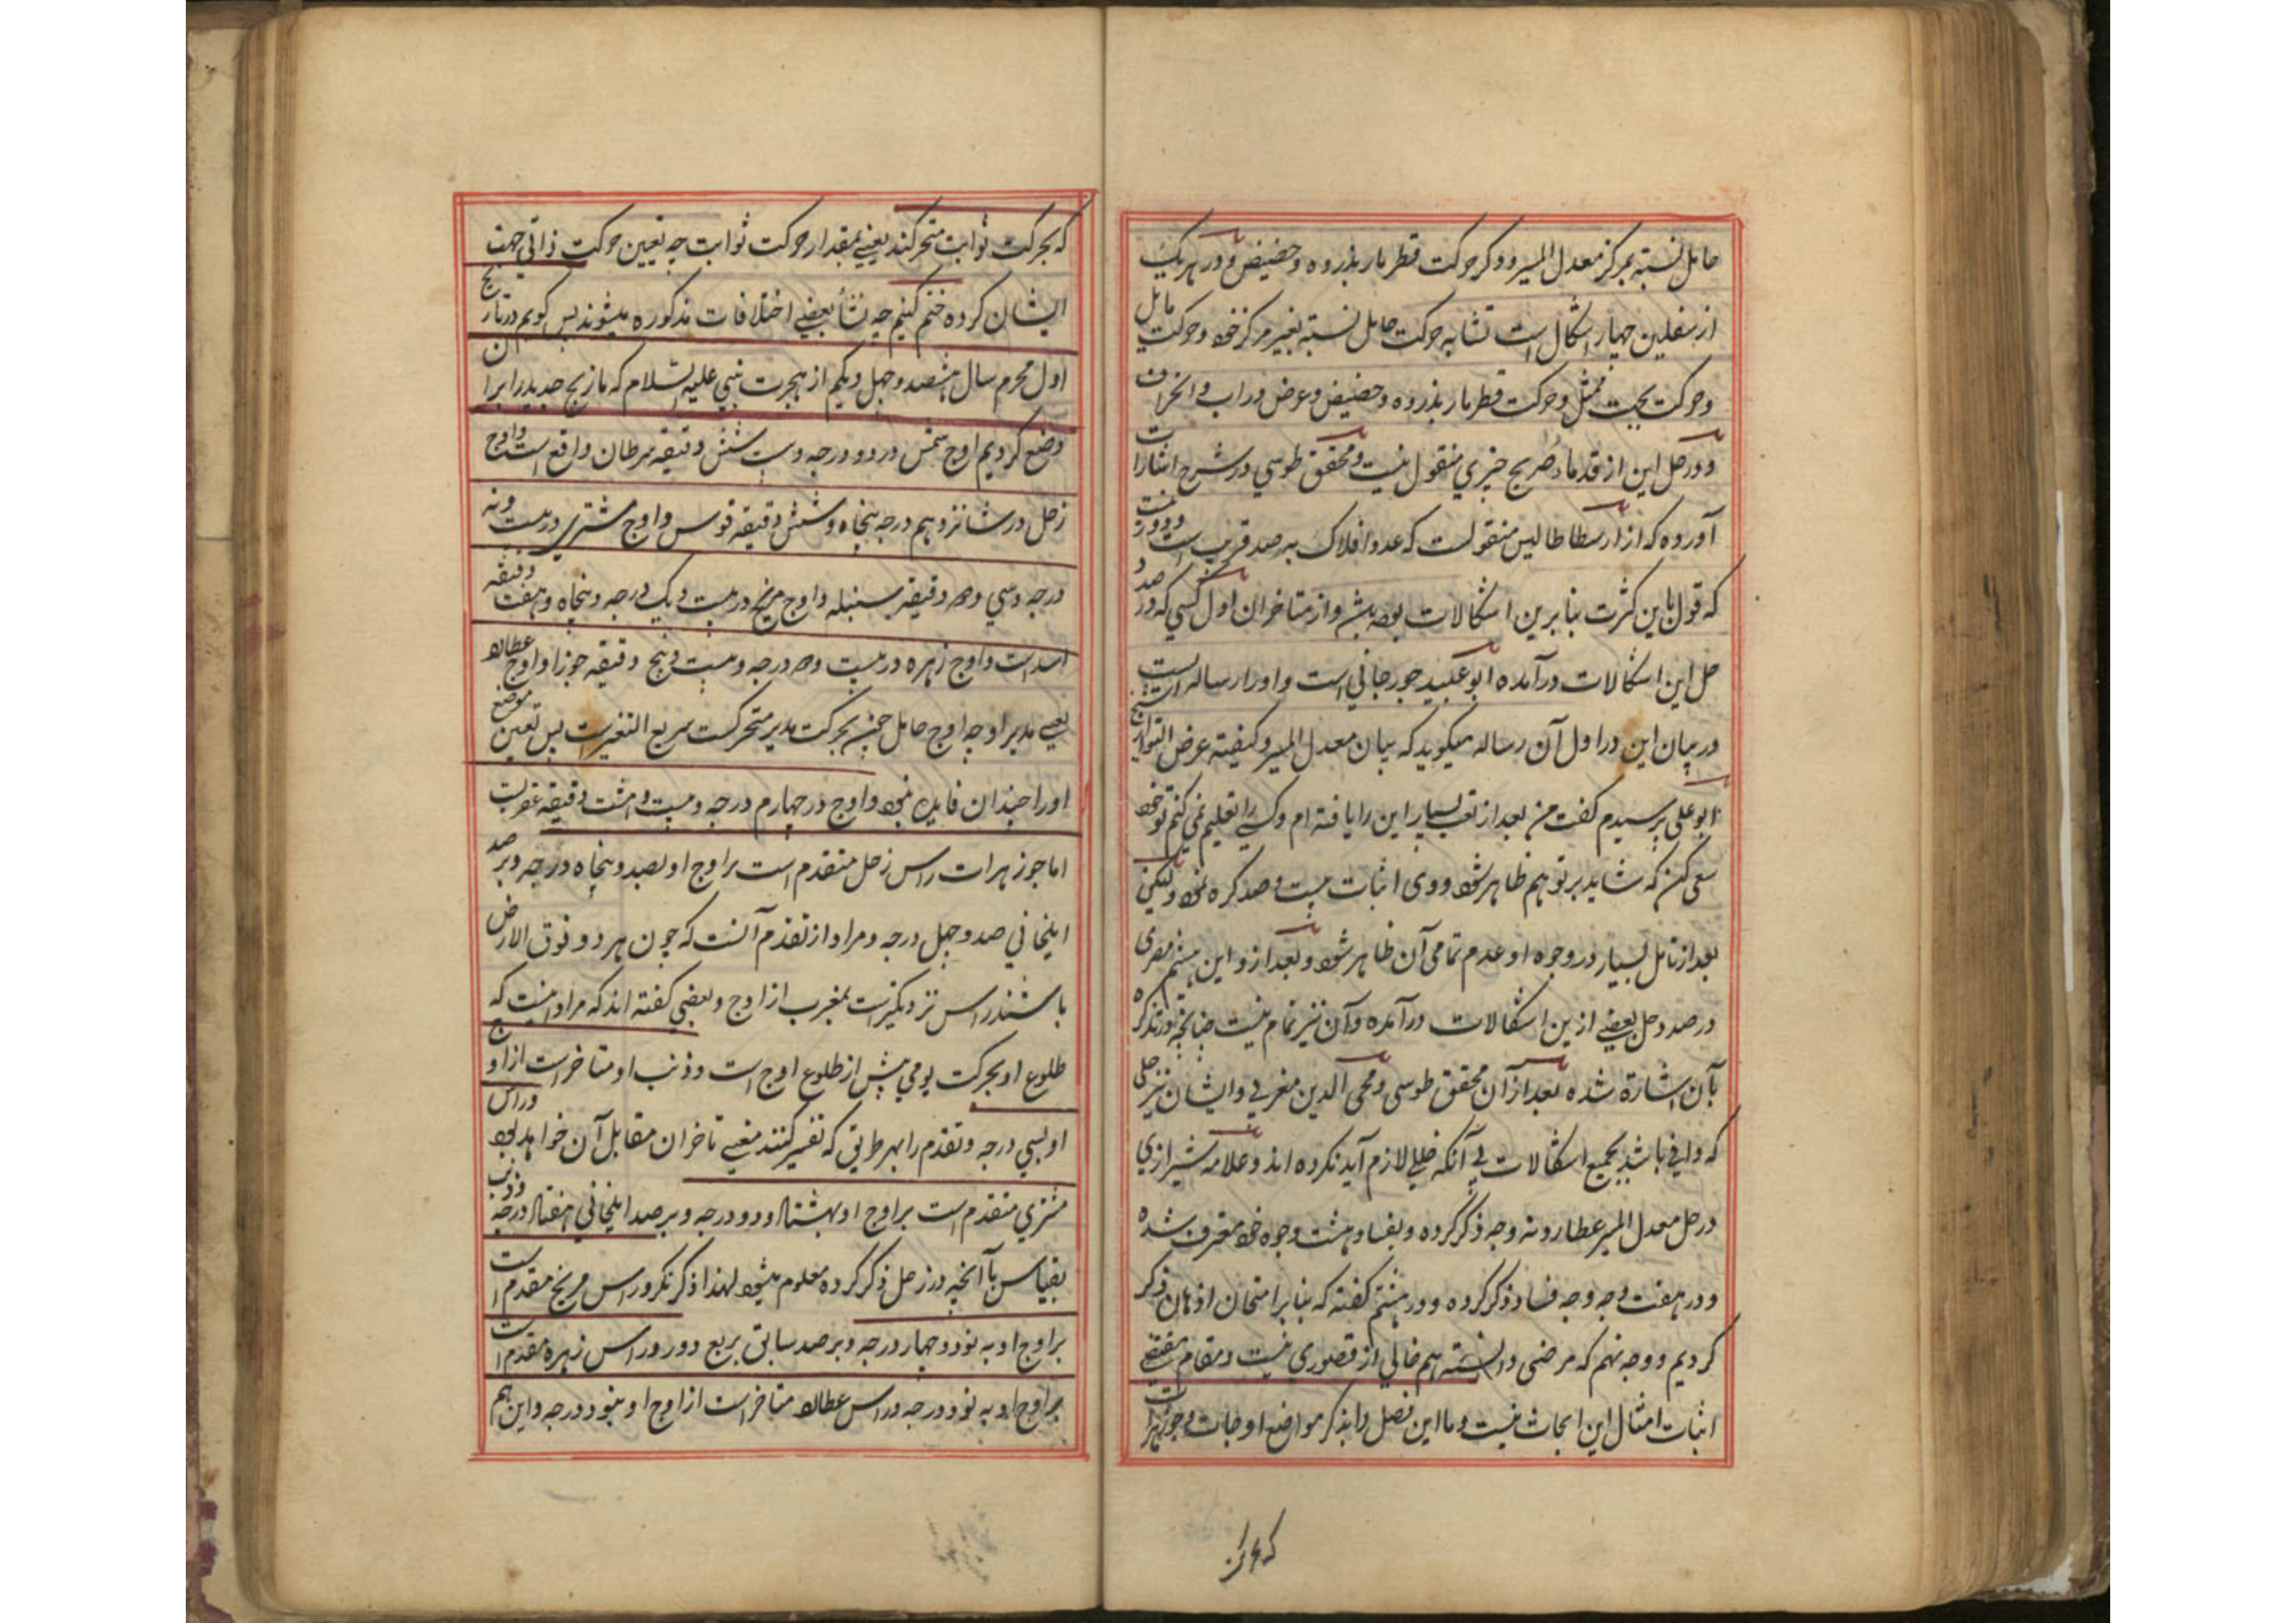 حامل نسبته بمرکز معدل المسیر و دیگر حرکت قطر مار بذروه و حضیض و در هر یک
از سفلین چهار اشکال است تشابه حرکت حامل نسبته بغیر مرکز خود و حرکت مایل
و حرکت بجهت ممثل و حرکت قطر مار بذروه و حضیض و عرض وراب و انحراف
و در حل این از قدما صریح چیزی منقول نیست و محقق طوسی در شرح اشارات
آورده که از ارسطاطالیس منقولست که عدد افلاک به صد قریب است
که قول باین کثرت بنابرین اشکالات بوده باشد و از متاخران اول کسی که در صدد
حل این اشکالات درآمده ابو عبید جورجانی است و او را رساله ایست
در بیان این در اول آن رساله میگوید که بیان معدل المسیر و کیفیته عرض التواء از شیخ
ابو علی پرسیدم گفت من بعد از تعب بسیار این را یافته ام و کسی را تعلیم نمی کنم تو خود
سعی کن که شاید بر تو هم ظاهر شود و وی اثبات بیست و صد کره نموده و لیکن
بعد از تامل بسیار در وجوه او عدم تمامی آن ظاهر شود و بعد ازو ابن هیثم مصری
در صدد حل بعضی ازین اشکالات درآمده و آن نیز تمام نیست چنانچه در تذکره
بآن اشارة شده بعد از آن محقق طوسی و محی الدین مغربی و ایشان نیز حلی
که وافی باشد بجمیع اشکالات بی آنکه خللی لازم آید نکرده اند و علامه شیرازی
در حل معدل المسیر عطارد نه وجه ذکر کرده و بفساد هشت وجوه خود معترف شده
و در هفت وجه وجه فساد ذکر کرده و در هشتم گفته که بنابر امتحان اذهان ذکر
کردیم و وجه نهم که مرضی دانسته هم خالی از قصوری نیست و مقام مقتضی
اثبات امثال این ابحاث نیست و ما این فصل را بذکر مواضع اوجات و جوزهرات
که بحرکت
که بحرکت ثوابت متحرکند یعنی بمقدار حرکت ثوابت چه تعیین حرکت ذاتی جهت
ایشان کرده ختم کنیم چه نشأ بعضی اختلافات مذکوره میشوند پس گویم در تاریخ
اول محرم سال هشصد و چهل و یکم از هجرت نبی علیه السلام که ما زیج جدید را بران
وضع کردیم اوج شمس در دو درجه و بیست شش دقیقه سرطان واقع است و اوج
زحل در شانزدهم درجه پنجاه و شش دقیقه قوس و اوج مشتری در بیست و نه
درجه و سی و سه دقیقه سنبله و اوج مریخ در بیست و یک درجه و پنجاه و هفت دقیقه
اسد است و اوج زهره در بیست و سه درجه و بیست و پنج دقیقه جوزا و اوج عطارد
یعنی مدیر او چه اوج حامل چون بحرکت مدیر متحرکست سریع التغیرست پس تعین موضع
او را چندان فایده نبود و اوج در چهارم درجه و بیست و هشت دقیقه عقربست
اما جوزهرات راس زحل متقدم است بر اوج او بصد و پنجاه درجه و بر صد
ایلخانی صد و چهل درجه و مراد از تقدم آنست که چون هر دو فوق الارض
باشند راس نزدیکترست بمغرب از اوج و بعضی گفته اند که مراد اینست که
طلوع او بحرکت یومی پیش از طلوع اوج است و ذنب او متاخر است از اوج
او بسی درجه و تقدم را بهر طریق که تفسیر کنند معنی تاخران مقابل آن خواهد بود و راس
مشتری متقدم است بر اوج او بهشتاد و دو درجه و بر صد ایلخانی هفتاد درجه و ذنب
بقیاس بآنچه در زحل ذکر کرده معلوم میشود لهذا ذکر نکرد و راس مریخ مقدم است
بر اوج او به نود و چهار درجه و بر صد سابق بربع دور و راس زهره مقدم است
بر اوج او به نود درجه و راس عطارد متاخر است از اوج او بنود درجه و این هم